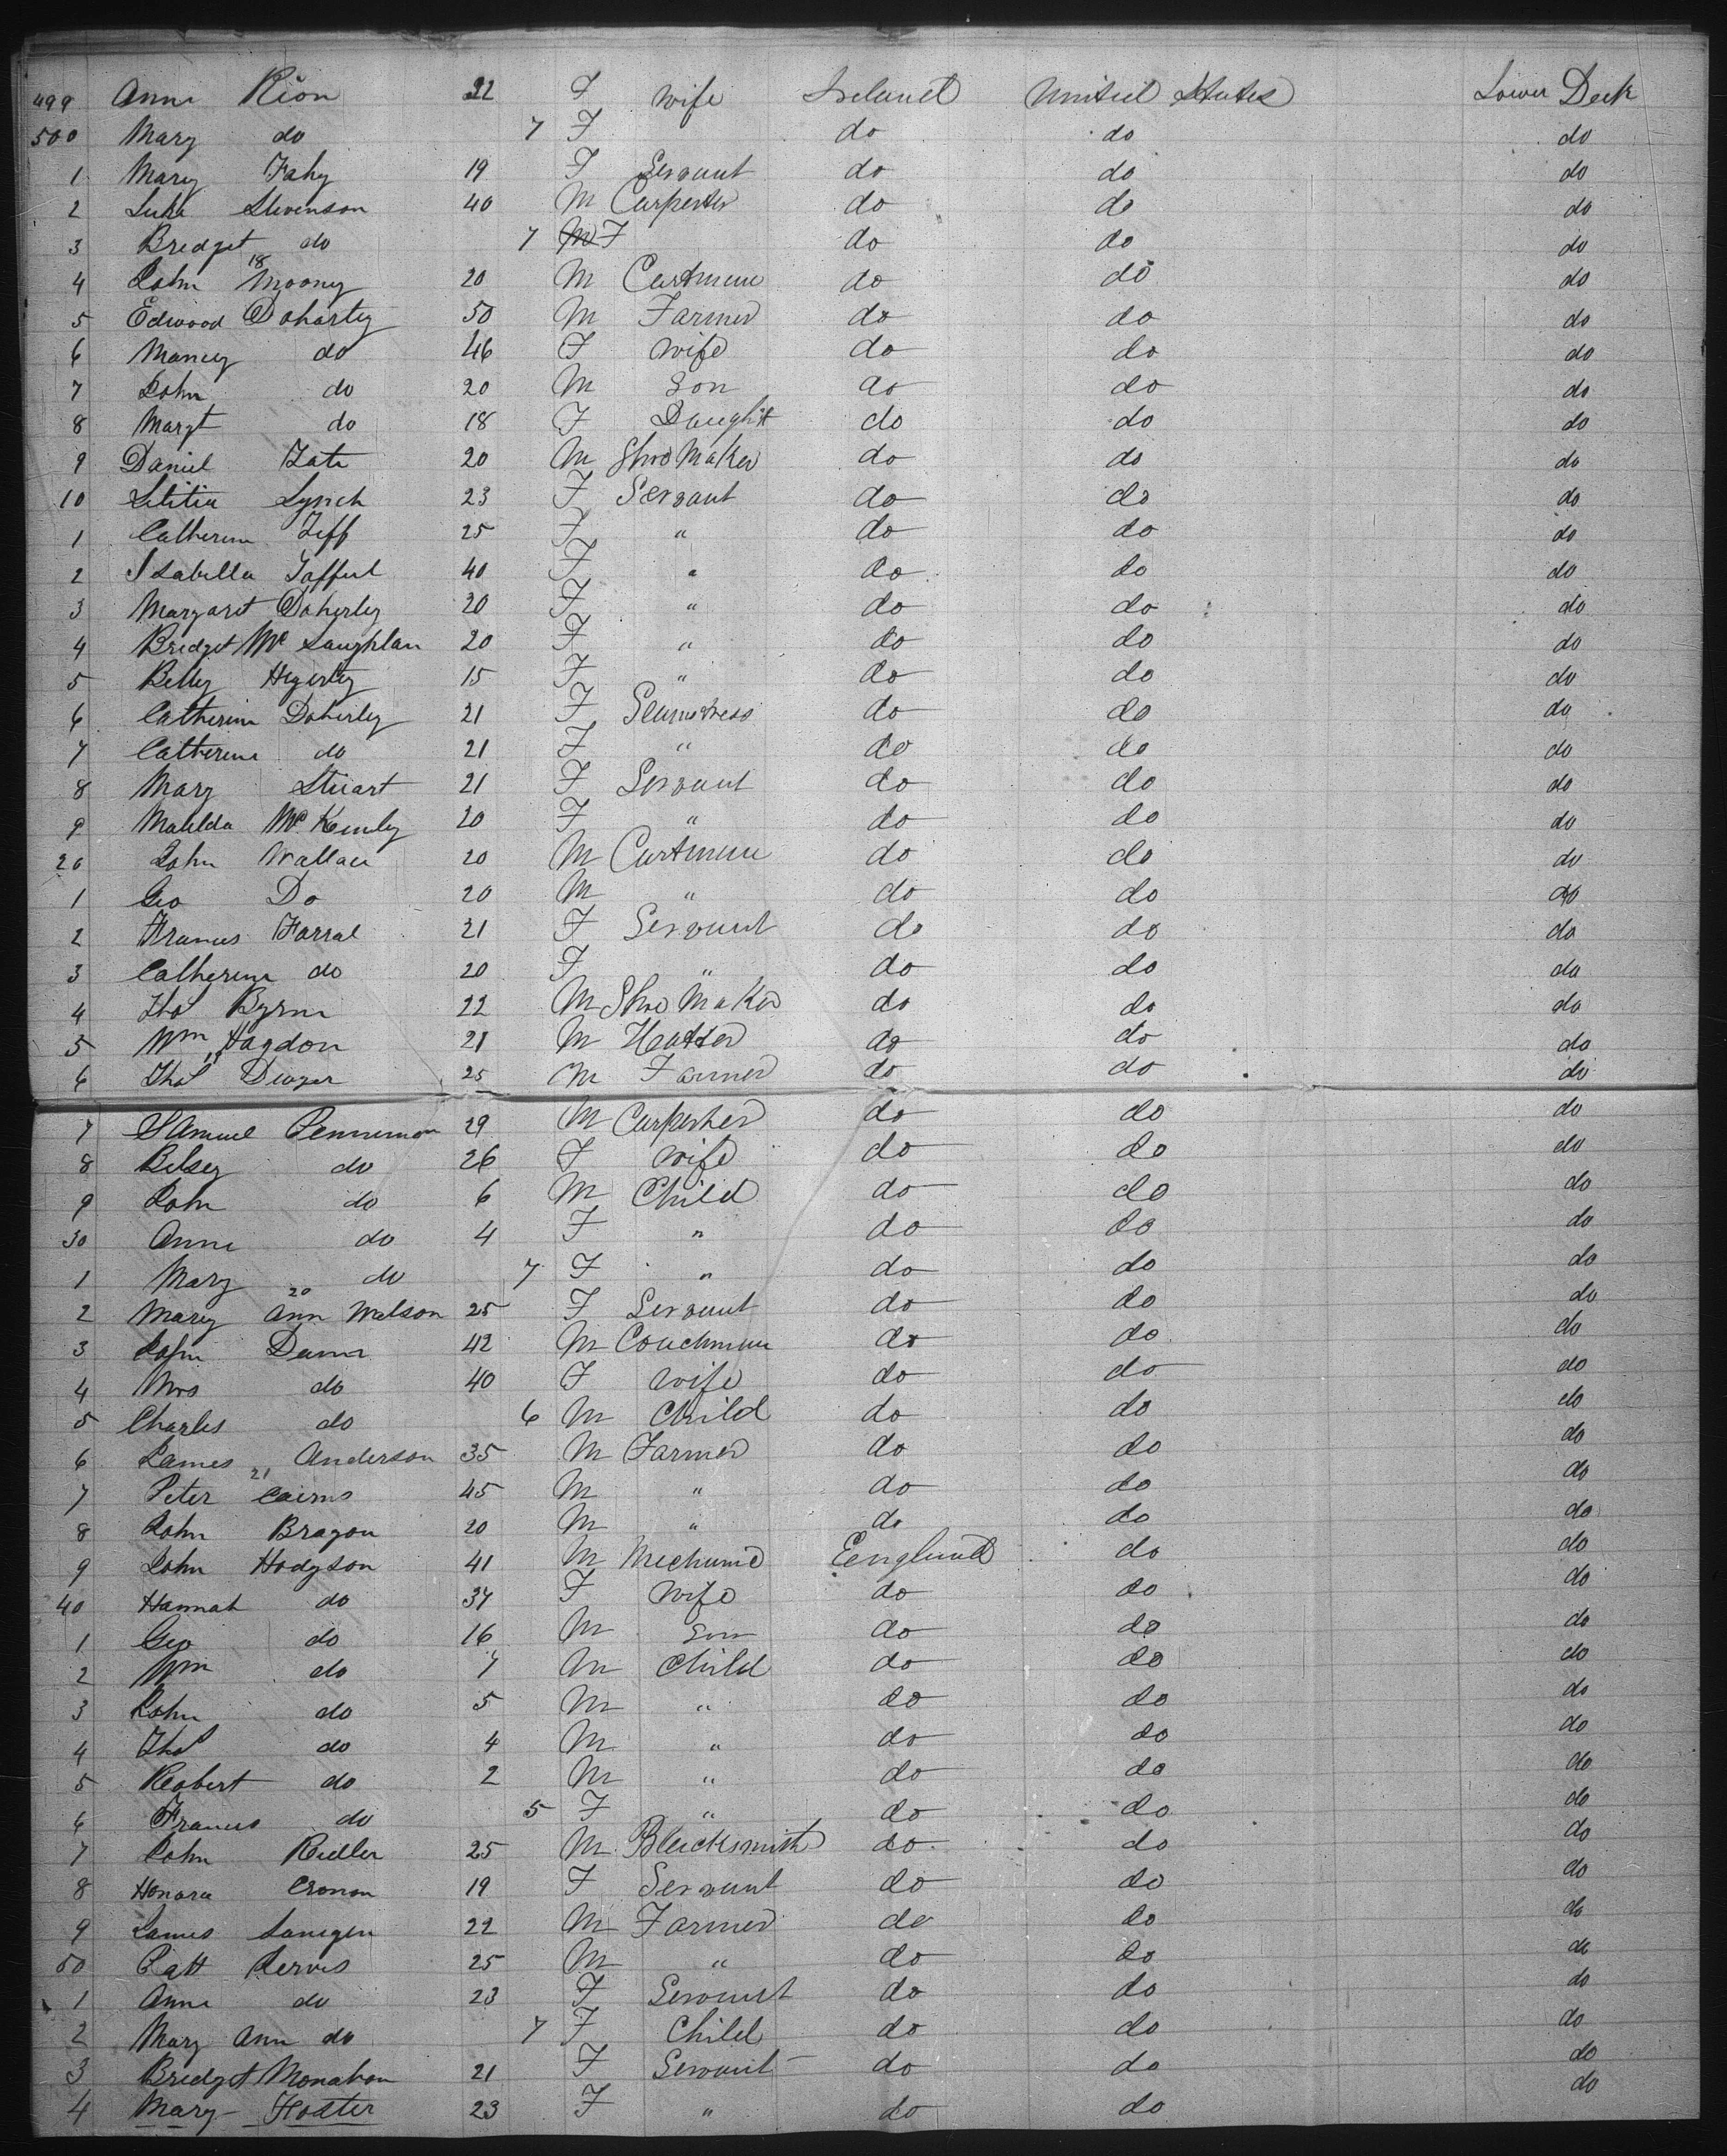 499 Anne Rion 22 F Wife Ireland United States Lower Deck
500 Mary do 7 F do do do
1 Mary Fahy 19 F Servant do do do
2 Luke Stevenson 40 M Carpenter do do do
3 Bridget do 7 M F do do do
18
4 John Moony 20 M Cartman do do do
5 Edwood Doharty 50 M Farmer do do do
6 Nancy do 46 F Wife do do do
7 John do 20 M Son do do do
8 Margt do 18 F Daught do do do
9 Daniel 20 M Shoe Maker do do do
10 Letitia Lynch 23 F Servant do do do
1 Catherine 25 F " do do do
2 Isabella 40 F " do do do
3 Margaret Doherty 20 F " do do do
4 Bridget Mc Laughlan 20 F " do do do
5 Betty Hegerty 15 F " do do do
6 Catherine Doherty 21 F Seamstress do do do
7 Catherine do 21 F " do do do
8 Mary Stuart 21 F Servant do do do
9 Matilda Mc Kenly 20 F " do do do
20 John Wallace 20 M Cartman do do do
1 Geo Do 20 M " do do do
2 Frances Farral 21 F Servant do do do
3 Catherine do 20 F " do do do
4 Tho Byrne 22 M Shoe Maker do do do
5 Wm Hagdon 21 M Hatter do do do
6 Thos 25 M Farmer do do do
7 Samuel Penneman 29 M Carpenter do do do
8 Betsey do 26 F Wife do do do
9 John do 6 M Child do do do
30 Anne do 4 F " do do do
1 Mary do 7 F " do do do
20
2 Mary Ann Watson 25 F Servant do do do
3 John Dunn 42 M Coachman do do do
4 Mrs do 40 F Wife do do do
5 Charles do 6 M Child do do do
6 James Anderson 35 M Farmer do do do
21
7 Peter Cairns 45 M " do do do
8 John Bragon 20 M " do do do
9 John Hodgson 41 M Mechanic Eengland do do
40 Hannah do 37 F Wife do do do
1 Geo do 16 M Son do do do
2 Wm do 7 M Child do do do
3 John do 5 M " do do do
4 Thos do 4 M " do do do
5 Robert do 2 M " do do do
6 Frances do 5 F " do do do
7 John Ridler 25 M Blacksmith do do do
8 Honora Cronon 19 F Servant do do do
9 James Lanigen 22 M Farmer do do do
50 Patt Jervis 25 M " do do do
1 Anne do 23 F Servant do do do
2 Mary Ann do 7 F Child do do do
3 Bridget Monahan 21 F Servant do do do
4 Mary Foster 23 F " do do